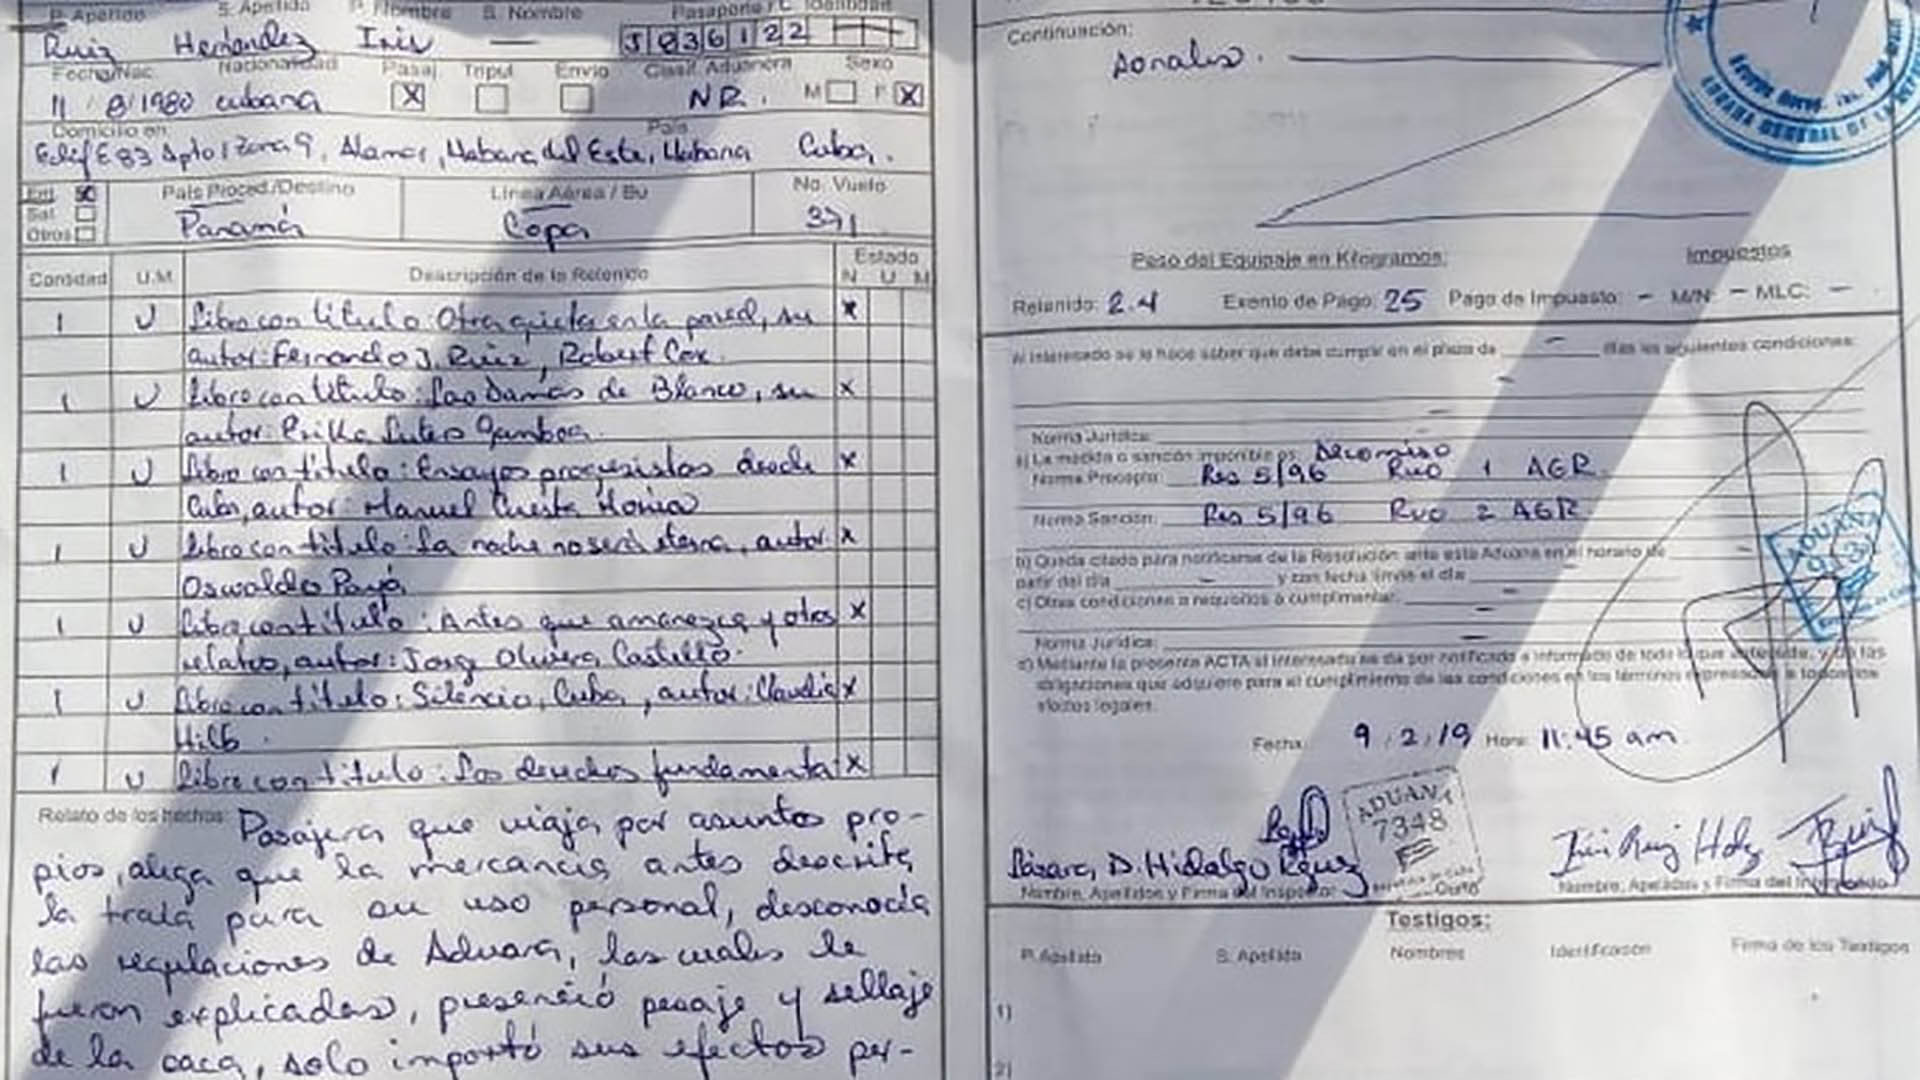 P. Apellido S. Apellido P. Nombre S. Nombre Pasaporte / C. Identidad
Ruiz Hernández Iris — J836122
Fecha/Nac. Nacionalidad Pasaj Tripul Envío Clasif. Aduanera Sexo
11/8/1980 cubana X NR. M F X
Domicilio en: País
Edif E83 Apto 1 Zona 9, Alamar, Habana del Este, Habana Cuba.
Ent. País Proced./Destino Línea Aérea / Bu No. Vuelo
Sal.
Otros Panamá Copa 371
Cantidad U.M Descripción de lo Retenido Estado
N U M
1 U Libro con titulo: Otra grieta en la pared, su x
autor: Fernando J. Ruiz, Robert Cox.
1 U Libro con titulo: Las Damas de Blanco, su x
autor: Erika Gamboa.
1 U Libro con titulo: Ensayos progresistas desde x
Cuba, autor: Manuel Cuesta Morúa
1 U Libro con titulo: La noche no será eterna, autor x
Oswaldo Payá
1 U Libro con titulo: Antes que amanezca y otros x
relatos, autor: Jorg Olivera Castillo.
1 U Libro con titulo: Silencio, Cuba, autor: Claudia x
Hilb.
1 U Libro con titulo: Los derechos fundamenta x
Relato de los hechos: Pasajera que viaja por asuntos pro-
pios, alega que la mercancia antes descrita,
la traia para su uso personal, desconocia
las regulaciones de Aduana, las cuales le
fueron explicadas, presenció pesaje y sellaje
de la caca, solo importó sus efectos per-
Continuación:
sonales.
Peso del Equipaje en Kilogramos: Impuestos
Retenido: 2.4 Exento de Pago: 25 Pago de Impuesto: - M/N: - MLC: -
Al interesado se le hace saber que debe cumplir en el plazo de — días las siguientes condiciones:
Norma Jurídica:
a) La medida o sanción imponible es: Decomiso
Norma Precepto: Res 5/96 Rvo 1 AGR.
Norma Sanción: Res 5/96 Rvo 2 AGR.
b) Queda citado para notificarse de la Resolución ante esta Aduana en el horario de
partir del día — y con fecha límite el día —
c) Otras condiciones o requisitos a cumplimentar:
Norma Jurídica: —
d) Mediante la presente ACTA el interesado se da por notificado e informado de todo lo que antecede, y de las
obligaciones que adquiere para el cumplimiento de las condiciones en los términos expresados a todos los
efectos legales.
ADUANA
Fecha: 9/2/19 Hora: 11:45 am
ADUANA
7348
Lázara, D. Hidalgo Rguez Iris Ruiz Hdez
Nombre, Apellidos y Firma del Inspector Nombre, Apellidos y Firma del Interesado
Testigos:
P. Apellido S. Apellido Nombres Identificación Firma de los Testigos
1)
2)